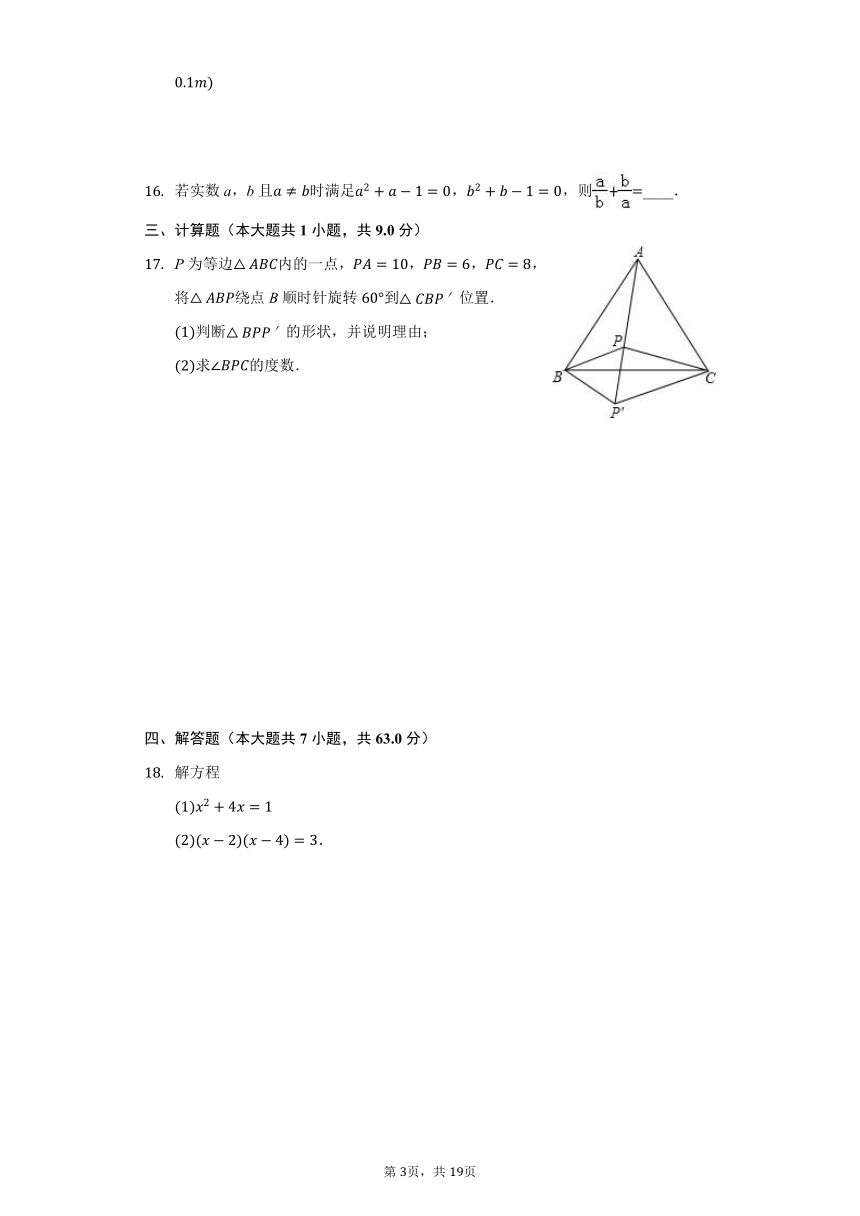 0.1m)
16. 若实数 a，b 且a ≠ b时满足a² + a − 1 = 0，b² + b − 1 = 0，则a/b+b/a=____.
三、计算题（本大题共 1 小题，共 9.0 分）
17. P 为等边△ ABC内的一点，PA = 10，PB = 6，PC = 8，
将△ ABP绕点 B 顺时针旋转 60°到△ CBP′位置.
(1)判断△ BPP′的形状，并说明理由；
(2)求∠BPC的度数.
A
P
B
C
P′
四、解答题（本大题共 7 小题，共 63.0 分）
18. 解方程
(1)x² + 4x = 1
(2)(x − 2)(x − 4) = 3.
第 3页，共 19页